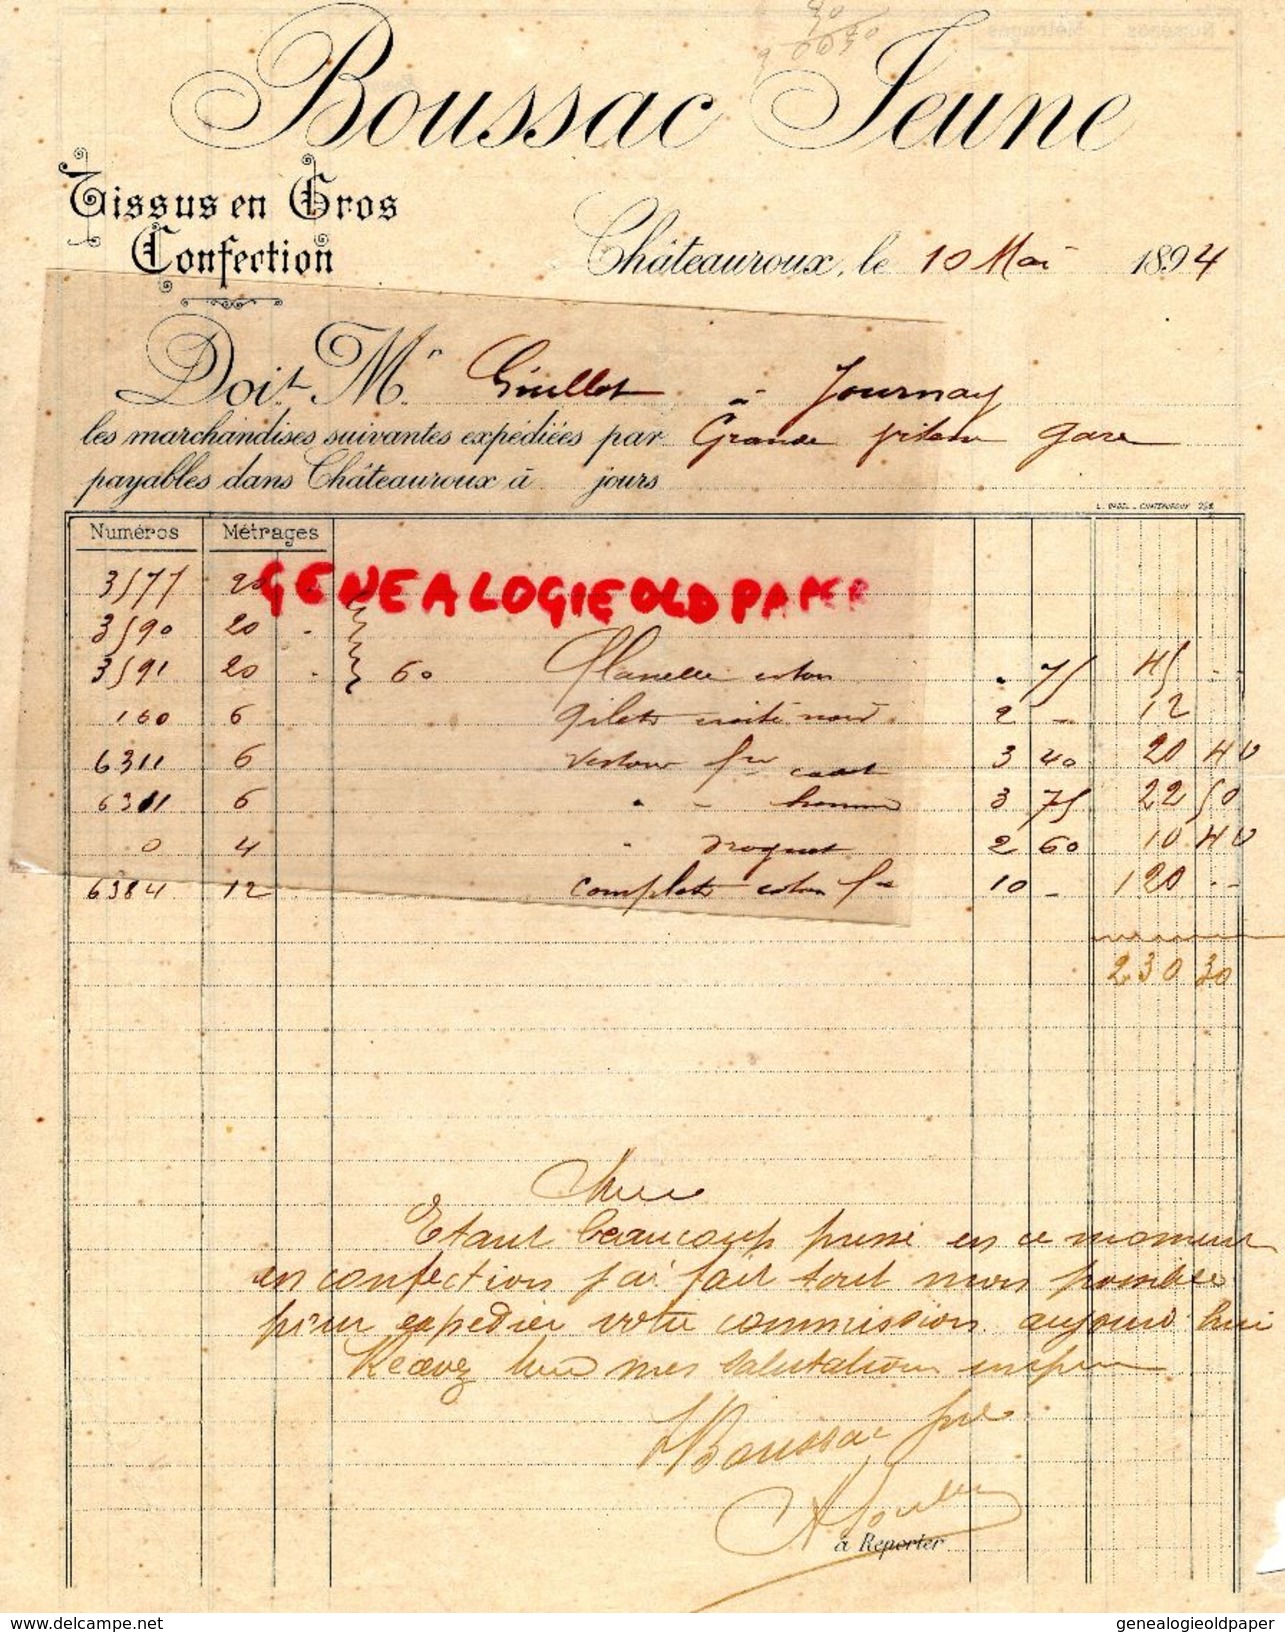 Boussac Jeune
Tissus en Gros
Confection
Châteauroux, le 10 Mai 1894
Doit Mr Guillot à Journay
les marchandises suivantes expédiées par Grande vitesse gare
payables dans Châteauroux à jours
Numéros Métrages
3577 20
GENEALOGIE OLD PAPER
3590 20 "
3591 20 " 60 Flanelle coton " 75 45 "
160 6 gilets 2 " 12
6311 6 Veston fre cadet 3 40 20 40
6311 6 " " homme 3 75 22 50
0 4 " 2 60 10 40
6384 12 complets coton fre 10 " 120 "
230 30
Etant beaucoup pressé en ce moment
en confection j'ai fait tout mon possible
pour expedier votre commission aujourd'hui
Recevez mes salutations
Boussac
à Reporter
www.delcampe.net genealogieoldpaper